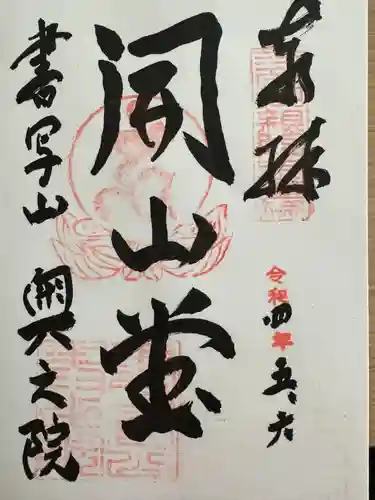 奉拝
令和四年五、六
開山堂
書写山奥之院